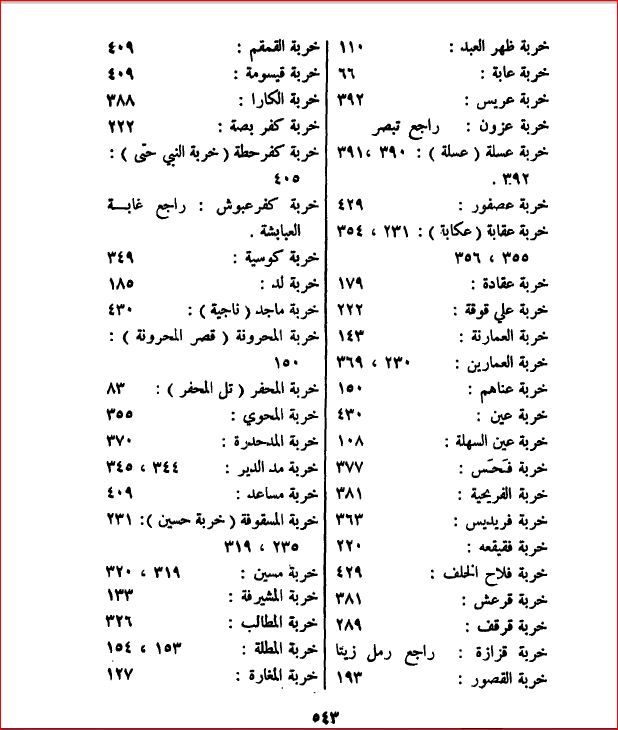 خربة ظهر العبد : ١١٠
خربة عابة : ٦٦
خربة عريس : ٣٩٢
خربة عزون : راجع تبصر
خربة عسلة ( عسلة ) : ٣٩٠ ، ٣٩١
٣٩٢ .
خربة عصفور : ٤٢٩
خربة عقابة ( عكابة ) : ٢٣١ ، ٣٥٤
٣٥٥ ، ٣٥٦
خربة عقادة : ١٧٩
خربة علي قوقة : ٢٢٢
خربة العمارنة : ١٤٣
خربة العمارين : ٢٣٠ ، ٣٦٩
خربة عناهم : ١٥٠
خربة عين : ٤٣٠
خربة عين السهلة : ١٠٨
خربة فَحَس : ٣٧٧
خربة الفريحية : ٣٨١
خربة فريديس : ٣٦٣
خربة فقيقعه : ٢٢٠
خربة فلاح الخلف : ٤٢٩
خربة قرعش : ٣٨١
خربة قرقف : ٢٨٩
خربة قزازة : راجع رمل زيتا
خربة القصور : ١٩٣
خربة القمقم : ٤٠٩
خربة قيسومة : ٤٠٩
خربة الكارا : ٣٨٨
خربة كفر بصة : ٢٢٢
خربة كفرحطة ( خربة النبي حتّى ) :
٤٠٥
خربة كفرعبوش : راجع غابـــة
العبابشة .
خربة كوسية : ٣٤٩
خربة لد : ١٨٥
خربة ماجد ( ناجية ) : ٤٣٠
خربة المحرونة ( قصر المحرونة ) :
١٥٠
خربة المحفر ( تل المحفر ) : ٨٣
خربة المحوي : ٣٥٥
خربة المدحدرة : ٣٧٠
خربة مد الدير : ٣٤٤ ، ٣٤٥
خربة مساعد : ٤٠٩
خربة المسقوفة ( خربة حسين ) : ٢٣١
٢٣٥ ، ٣١٩
خربة مسين : ٣١٩ ، ٣٢٠
خربة المشيرفة : ١٣٣
خربة المطالب : ٣٢٦
خربة المطلة : ١٥٣ ، ١٥٤
خربة المغارة : ١٢٧
٥٤٣